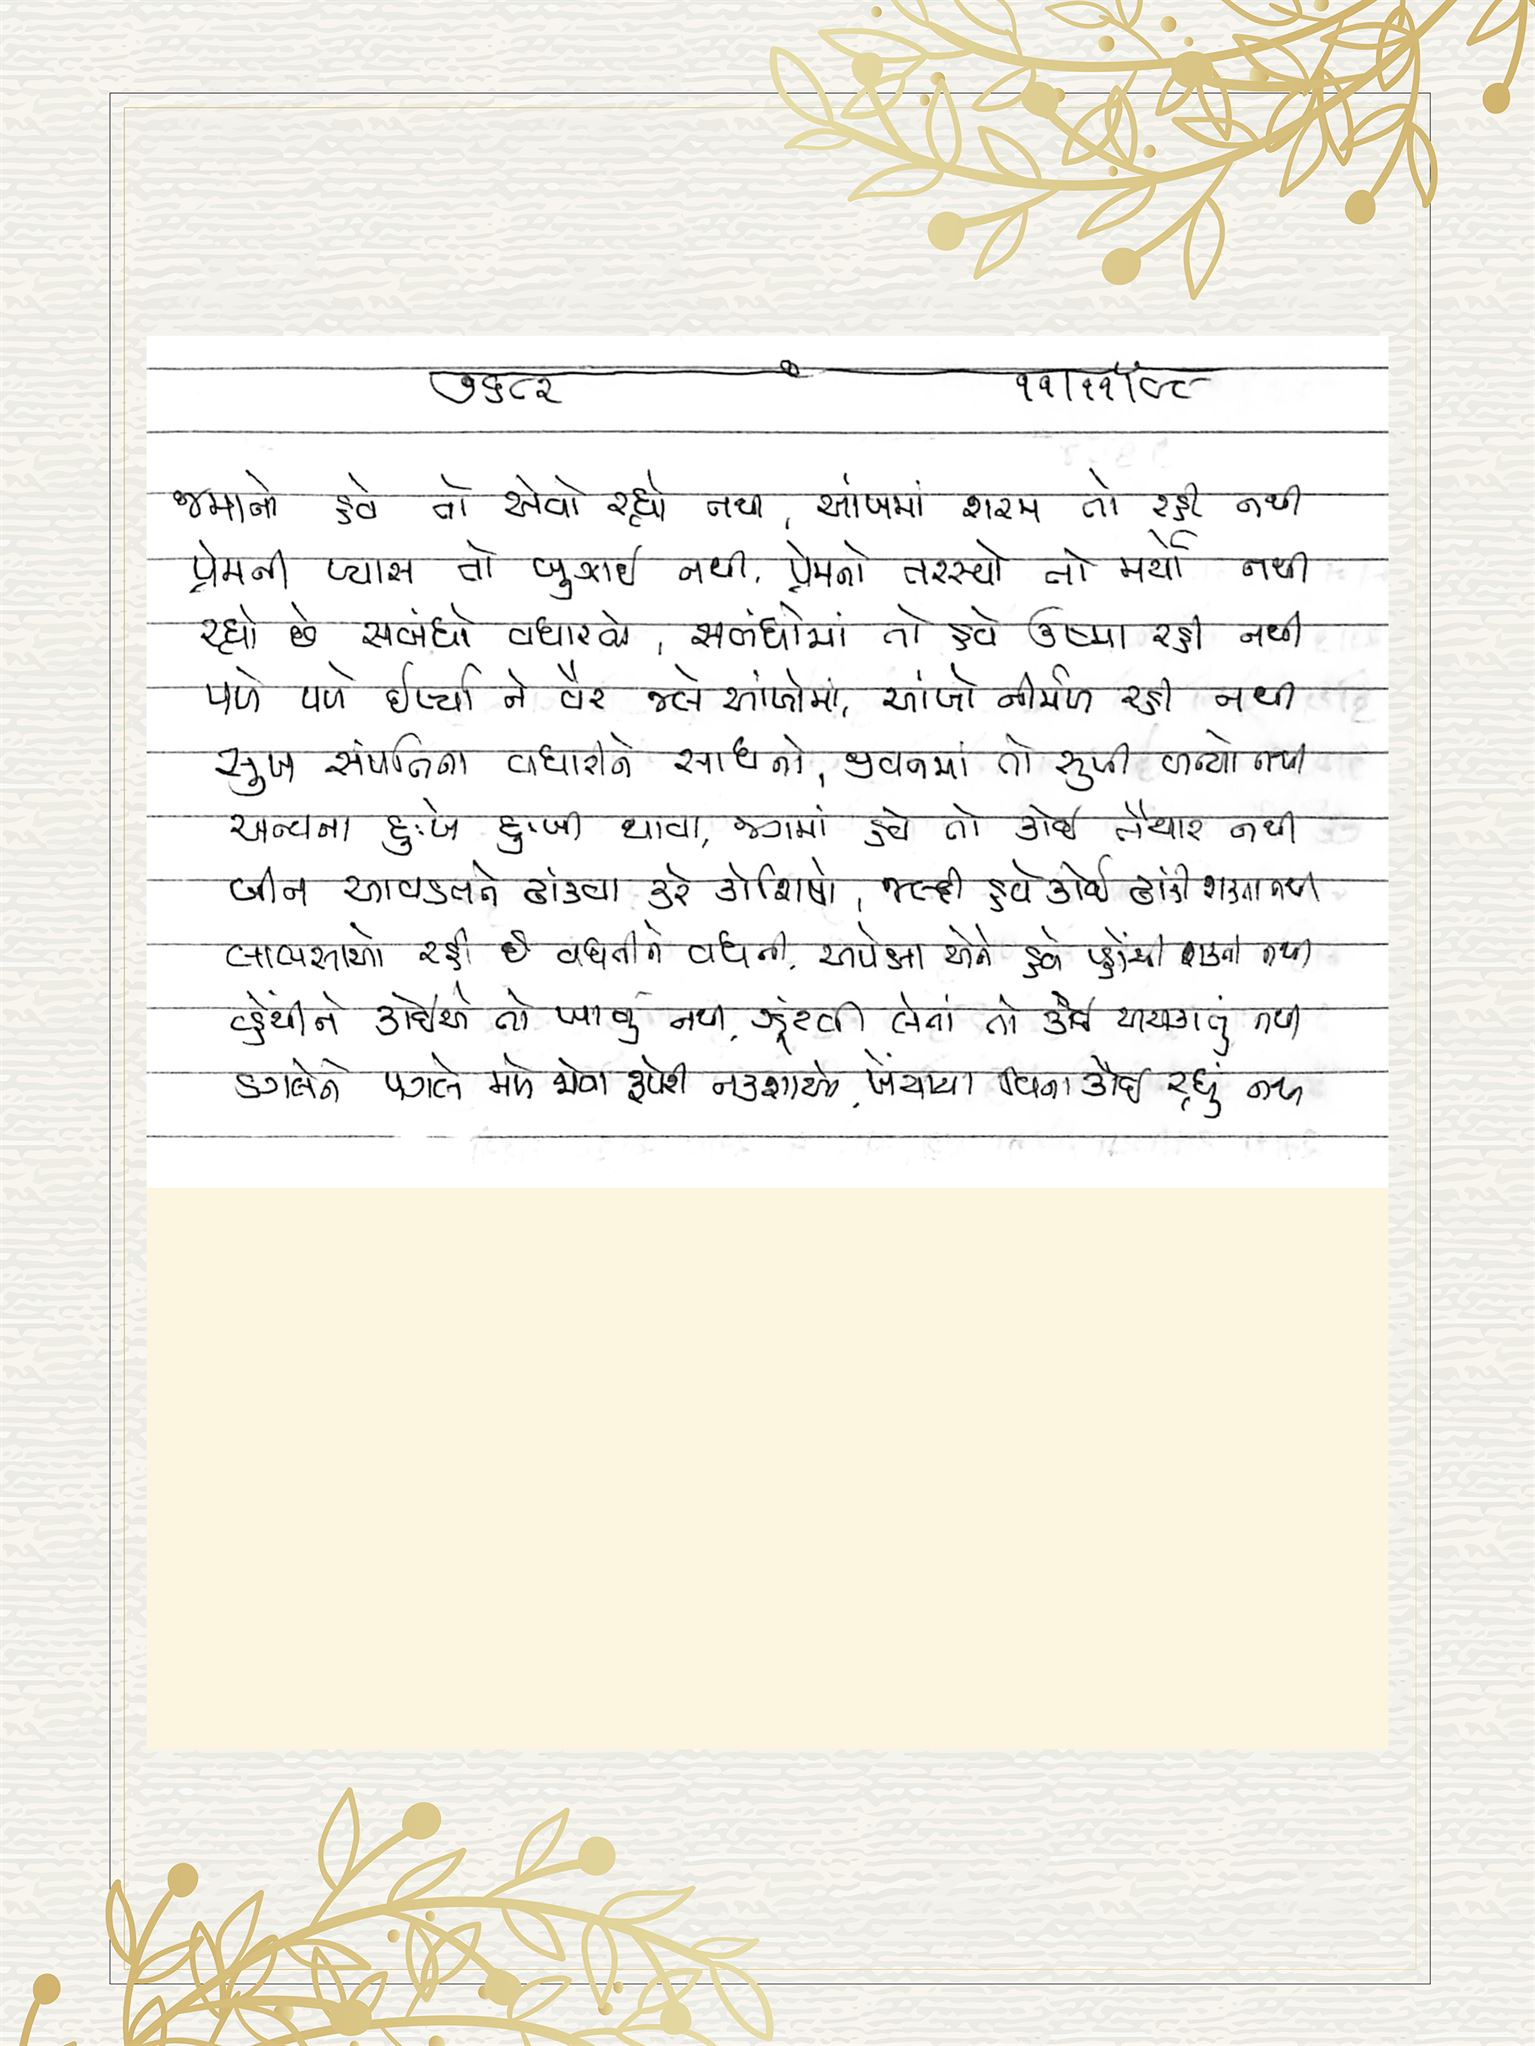 ૭૬૮૨ ૧૧/૧૧/૯૮
જમાનો હવે તો એવો રહ્યો નથી, આંખમાં શરમ તો રહી નથી
પ્રેમની પ્યાસ તો બુઝાઈ નથી, પ્રેમનો તરસ્યો તો મર્યો નથી
રહ્યો છે સબંધો વધારતો, સબંધોમાં તો હવે ઉષ્મા રહી નથી
પળે પળે ઈર્ષ્યા ને વૈર જલે આંખોમાં, આંખો નીર્મળ રહી નથી
સુખ સંપત્તિના વધારીને સાધનો, જીવનમાં તો સુખી બન્યો નથી
અન્યના દુઃખે દુઃખી થાવા, જગમાં હવે તો કોઈ તૈયાર નથી
બીન આવડતને ઢાંકવા કરે કોશિષો, જલ્દી હવે કોઈ ઢાંકી શકતા નથી
લાલસાઓ રહી છે વધતીને વધતી, અપેક્ષા એને હવે પ્હોંચી શકતી નથી
વ્હેંચીને કોઈએ તો ખાવું નથી, ઝૂંટવી લેતાં તો કોઈ અચકાતું નથી
ડગલેને પગલે મળે એવા રૂપેરી નકશાઓ, ખેંચાયા વિના કોઈ રહ્યું નથી